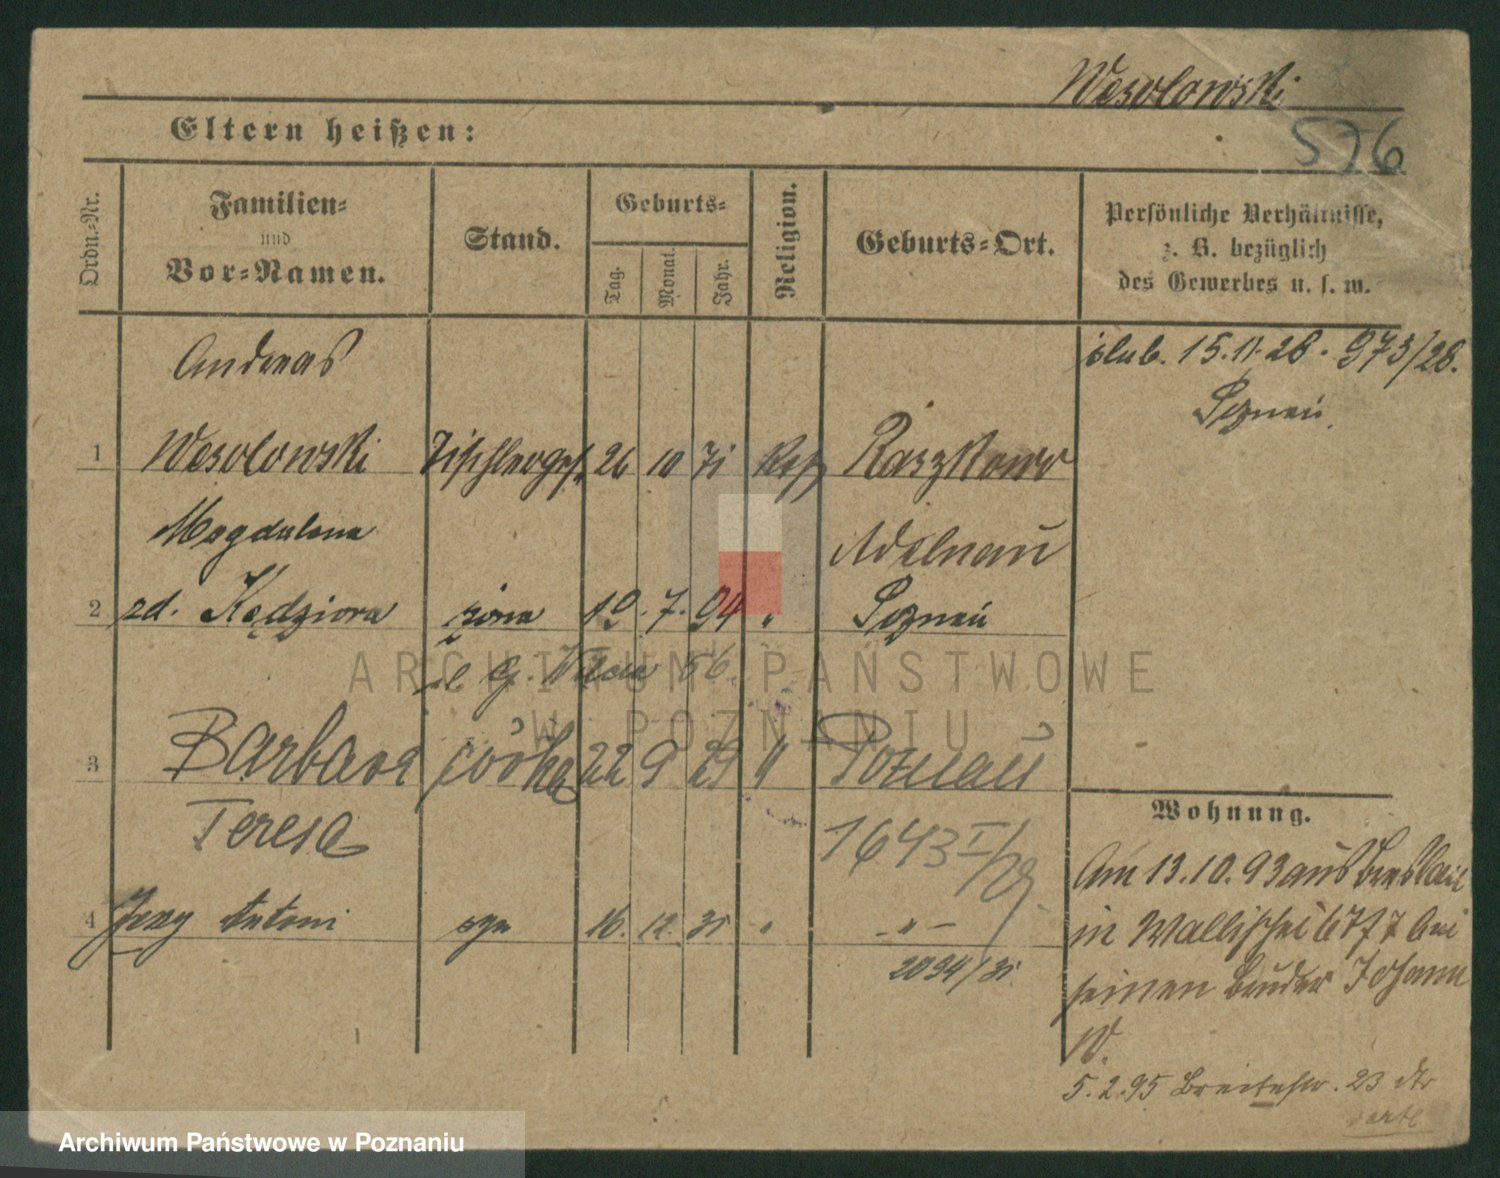 Wesolowski
Eltern heißen:
576
Ordn.-Nr.
Familien-
und
Vor-Namen.
Stand.
Geburts-
Tag.
Monat.
Jahr.
Religion.
Geburts-Ort.
Persönliche Verhältnisse,
z. B. bezüglich
des Gewerbes u. s. w.
Andreas
ślub. 15.11.28. 973/28.
Poznań
1 Wesolowski Tischlerges. 26 10 71 Kath Raszkowo
Magdalena Adelnau
2 zd. Kędziora żona 19. 7. 94 " Poznań
ul. G. Wilda 56.
ARCHIWUM PAŃSTWOWE
W POZNANIU
3 Barbara córka 22 9 29 " Poznań
Teresa 1643 I/29.
4 Jerzy Antoni syn 16. 12. 31 " - " -
2094/31.
Wohnung.
Am 13.10.93 aus Breslau
in Wallischei 67/7 bei
seinen Bruder Johann
W.
5.2.95 Breitestr. 23
Archiwum Państwowe w Poznaniu